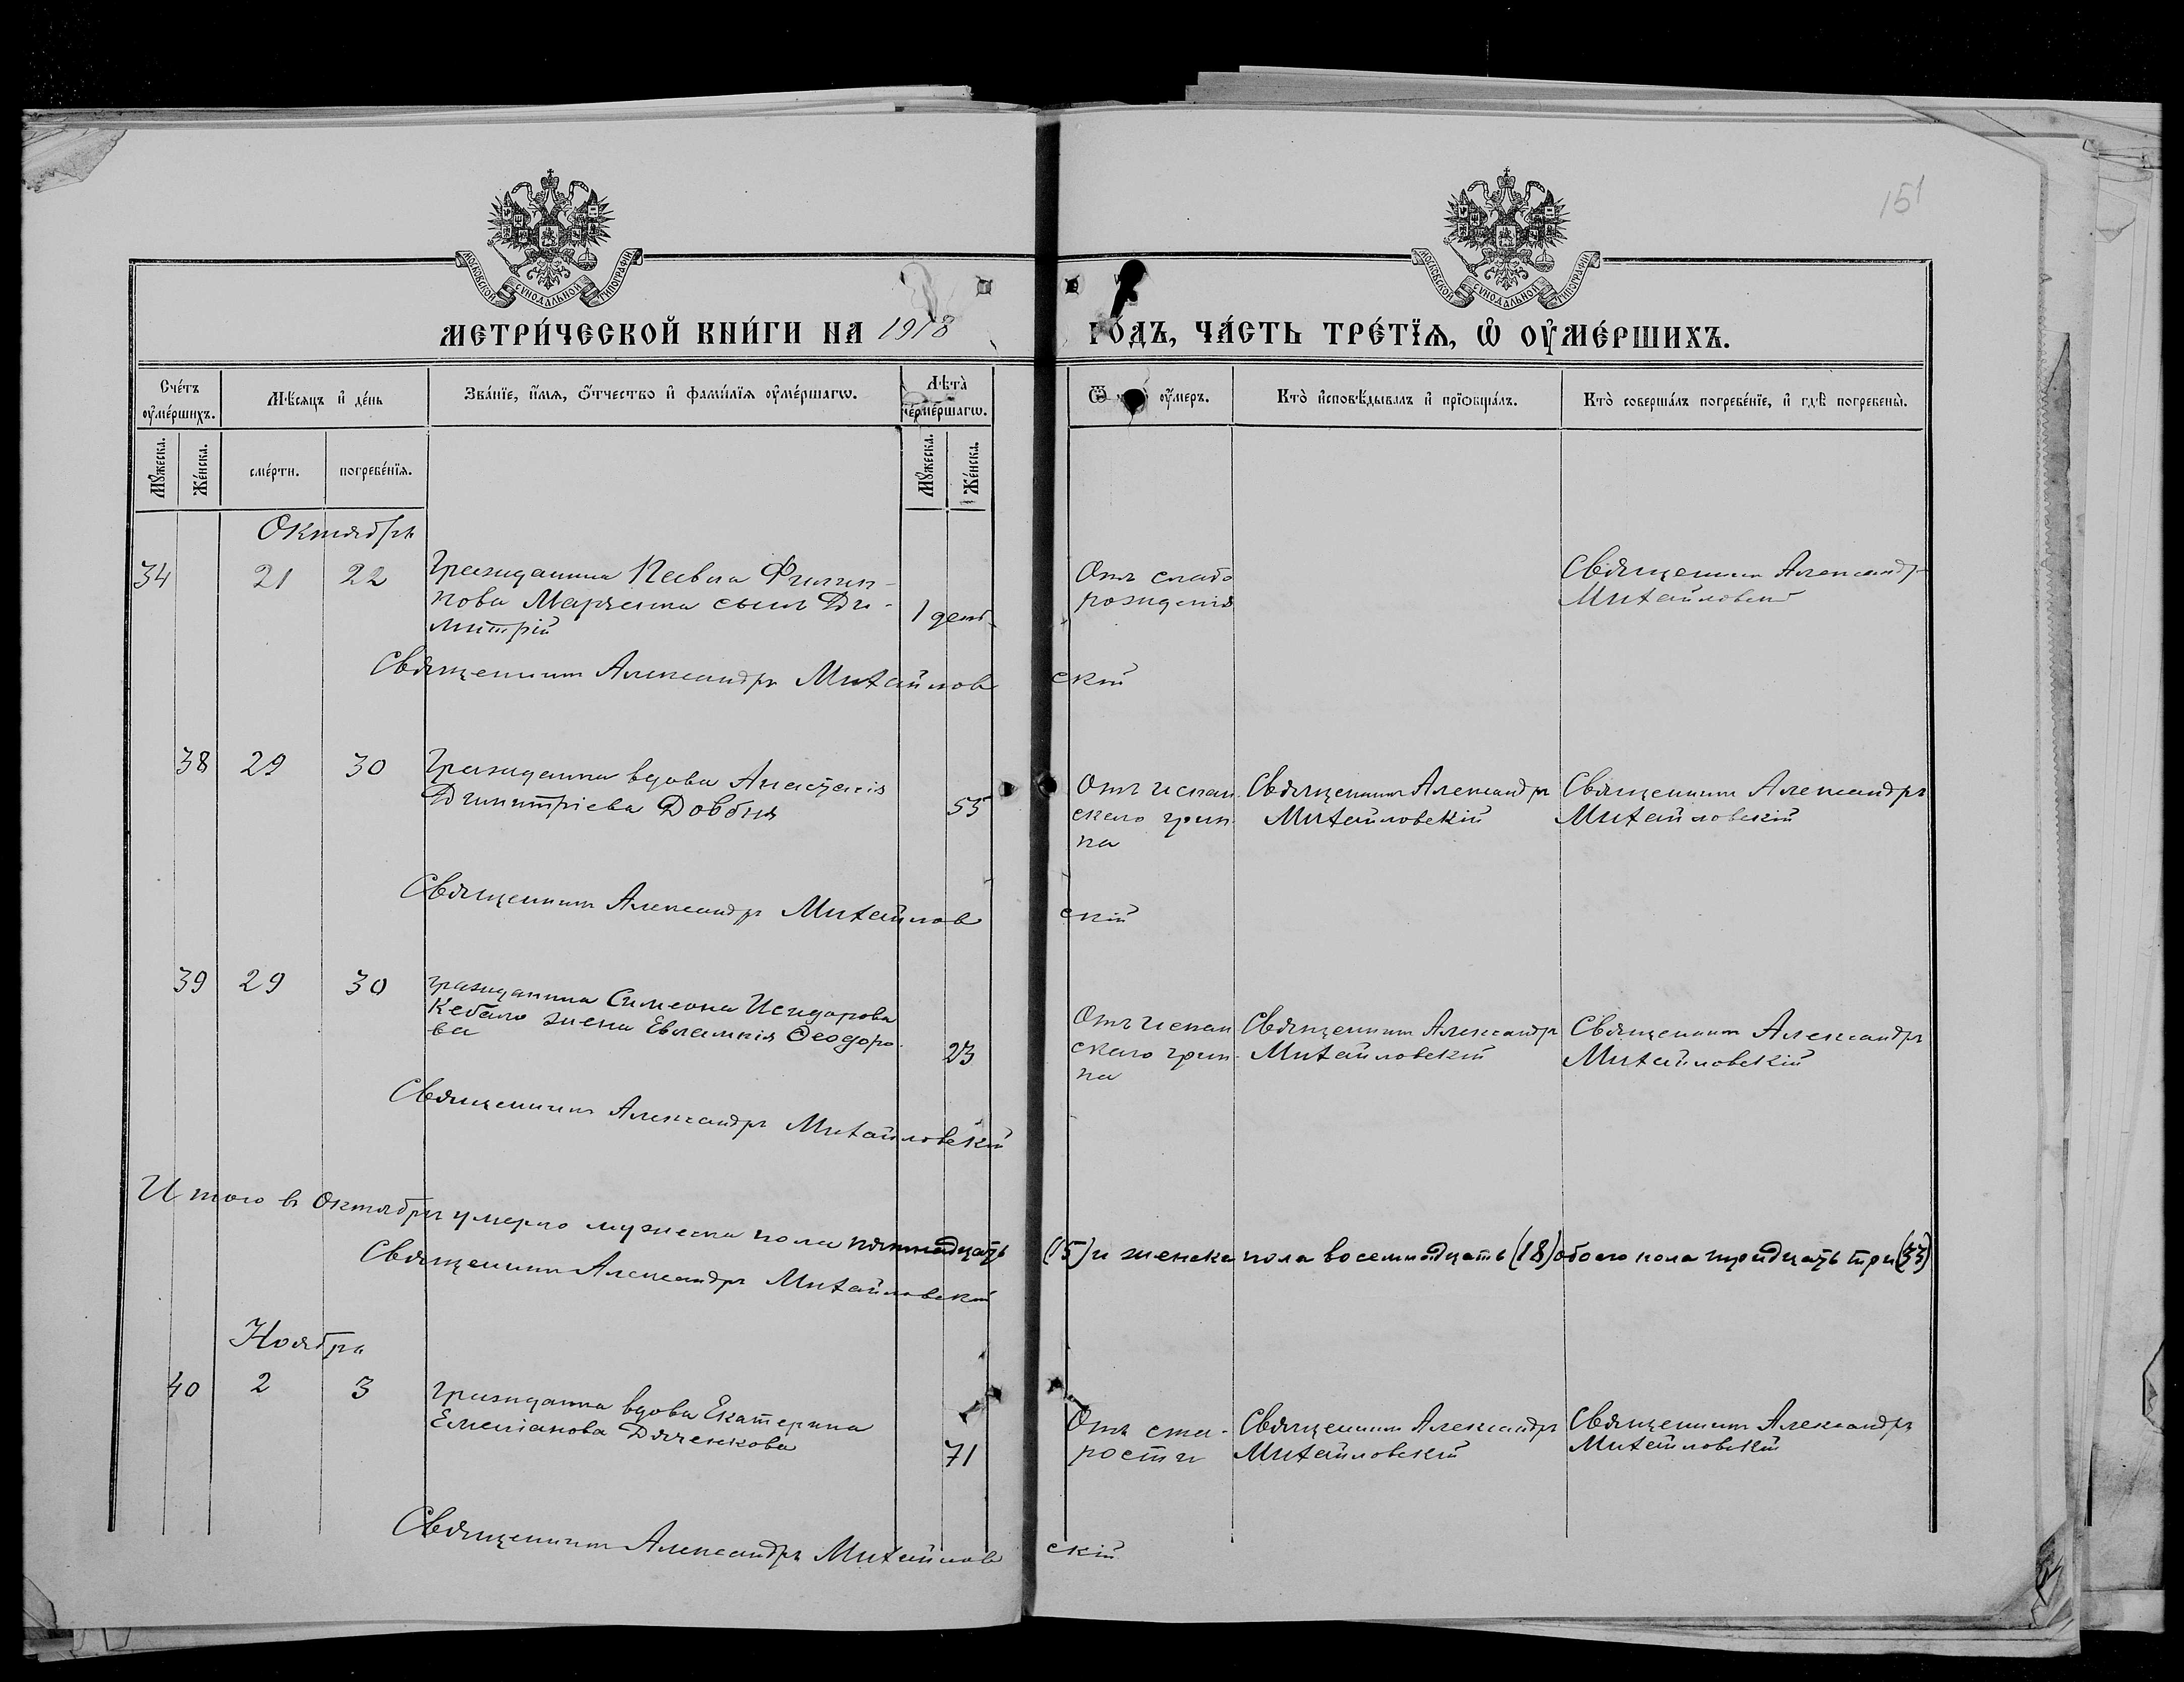 151
МОСКОВСКОЙ СѴНОДАЛЬНОЙ ТИПОГРАФІИ
МОСКОВСКОЙ СѴНОДАЛЬНОЙ ТИПОГРАФІИ
МЕТРИ́ЧЕСКОЙ КНИ́ГИ НА 1918 ГО́ДЪ, ЧА́СТЬ ТРЕ́ТЇѦ, Ѡ҆ ОУ҆МЕ́РШИХЪ.
Сче́тъ оу҆ме́ршихъ.
Мѣ́сяцъ и҆ де́нь
Зва́нїе, и҆́мя, ѻ҆́тчество и҆ фами́лїя оу҆ме́ршагѡ.
Лѣ́та̀ оу҆ме́ршагѡ.
Ѿ оу҆́меръ.
Кто̀ и҆сповѣ́дывалъ и҆ прїѡбща́лъ.
Кто̀ соверша́лъ погребе́нїе, и҆ гдѣ̀ погребены̀.
Мꙋ́жеска. Же́нска. сме́рти. погребе́нїя. Мꙋ́жеска. Же́нска.
Октябрь
34 21 22 Гражданина Павла Филип-
пова Марченка сынъ Ди-
митрій
1 день
Отъ слабо
рожденія
Священникъ Александръ
Михайловскій
Священникъ Александръ Михайловскій
38 29 30 Гражданка вдова Анастасія
Димитріева Довбня
55
Отъ испан-
скаго грип-
па
Священникъ Александръ
Михайловскій
Священникъ Александръ
Михайловскій
Священникъ Александръ Михайловскій
39 29 30 гражданина Симеона Исидорова
Кебало жена Евлампія Ѳеодоро-
ва
23
Отъ испан
скаго грип-
па
Священникъ Александръ
Михайловскій
Священникъ Александръ
Михайловскій
Священникъ Александръ Михайловскій
Итого въ Октябрѣ умерло мужеска пола пятнадцать (15) и женска пола восемнадцать (18) обоего пола тридцать три (33)
Священникъ Александръ Михайловскій
Ноябрь
40 2 3 гражданка вдова Екатерина
Емеліанова Дяченкова
71
Отъ ста-
рости
Священникъ Александръ
Михайловскій
Священникъ Александръ
Михайловскій
Священникъ Александръ Михайловскій